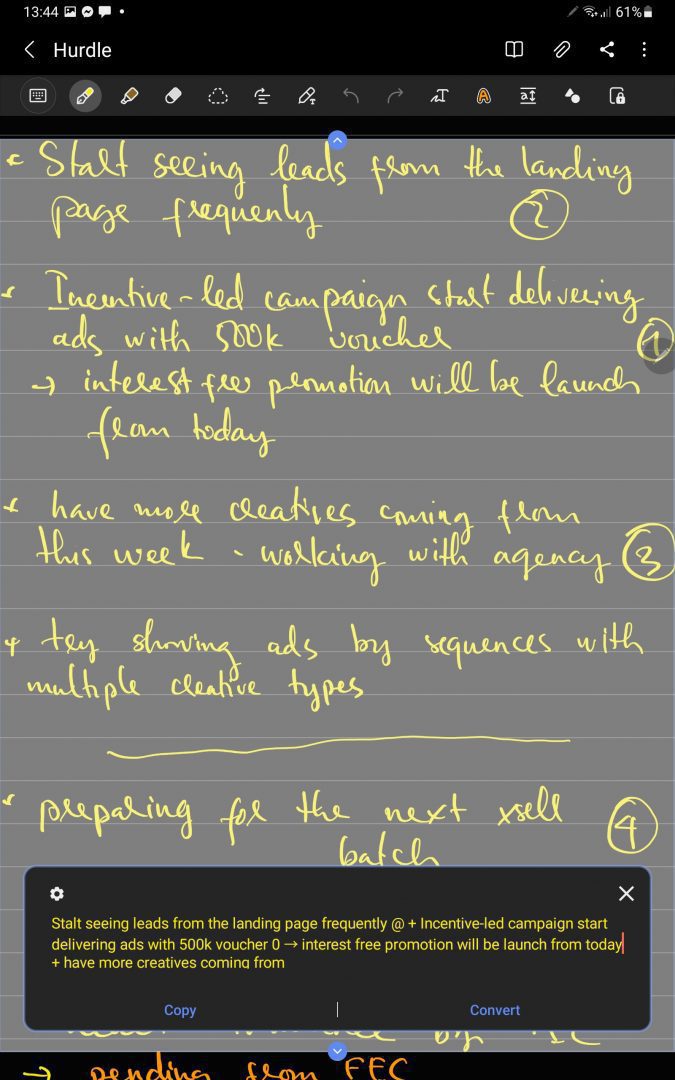 13:44 61%
Hurdle
Stalt seeing leads from the landing
page frequenly 2
Incentive-led campaign start delivering
ads with 500k voucher 1
→ interest free promotion will be launch
from today
have more creatives coming from
this week - working with agency 3
+ try showing ads by sequences with
multiple creative types
preparing for the next xsell 4
batch
Stalt seeing leads from the landing page frequently @ + Incentive-led campaign start
delivering ads with 500k voucher 0 → interest free promotion will be launch from today
+ have more creatives coming from
Copy Convert
→ pending from FEC